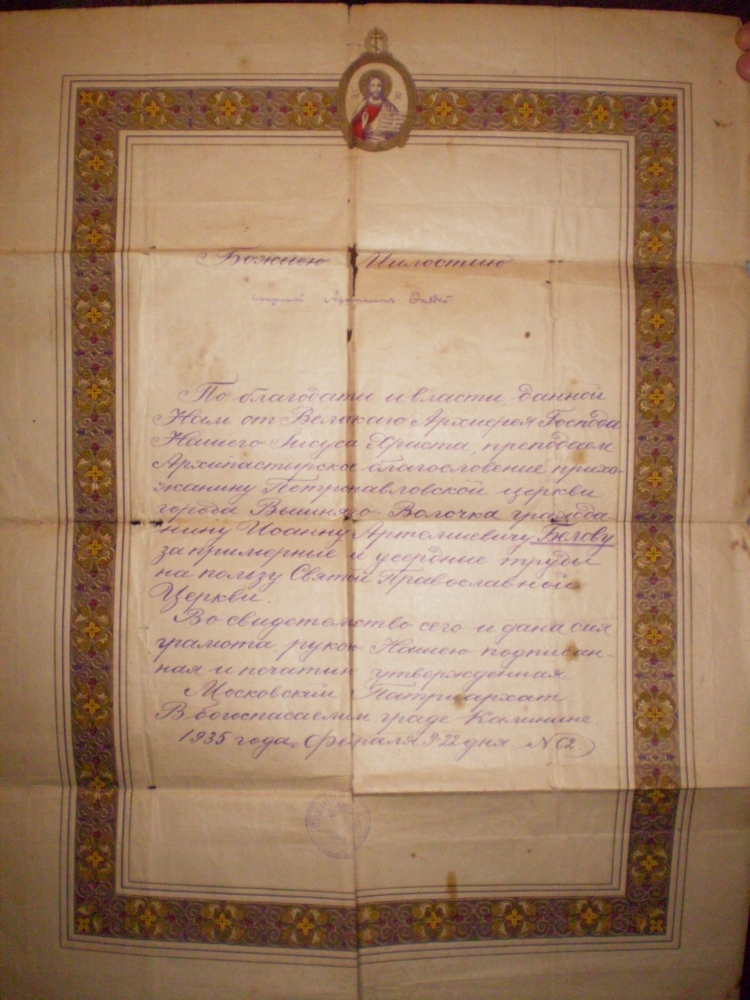 Божиею Милостию
смиренный Архиепископ Фаддей
По благодати и власти, данной
Нам от Великаго Архиерея Господа
Нашего Iисуса Христа, преподаем
Архипастырское благословение прихо-
жанину Петропавловской церкви
города Вышняго-Волочка гражда
нину Иоанну Артемиевичу Беглову
за примерные и усердные труды
на пользу Святой Православной
Церкви.
Во свидетельство сего и дана сия
грамота, рукою Нашею подписан-
ная и печатию утвержденная
Московский Патриархат.
В богоспасаемом граде Калинине
1935 года, Февраля 9-22 дня №62